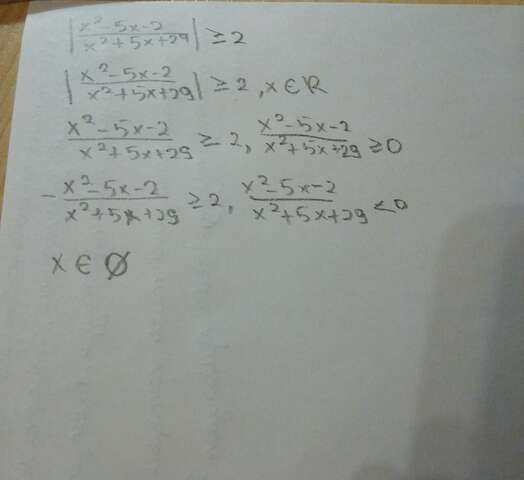 |x²-5x-2 / x²+5x+29| ≥ 2
|x²-5x-2 / x²+5x+29| ≥ 2, x ∈ R
x²-5x-2 / x²+5x+29 ≥ 2, x²-5x-2 / x²+5x+29 ≥ 0
- x²-5x-2 / x²+5x+29 ≥ 2, x²-5x-2 / x²+5x+29 < 0
x ∈ Ø